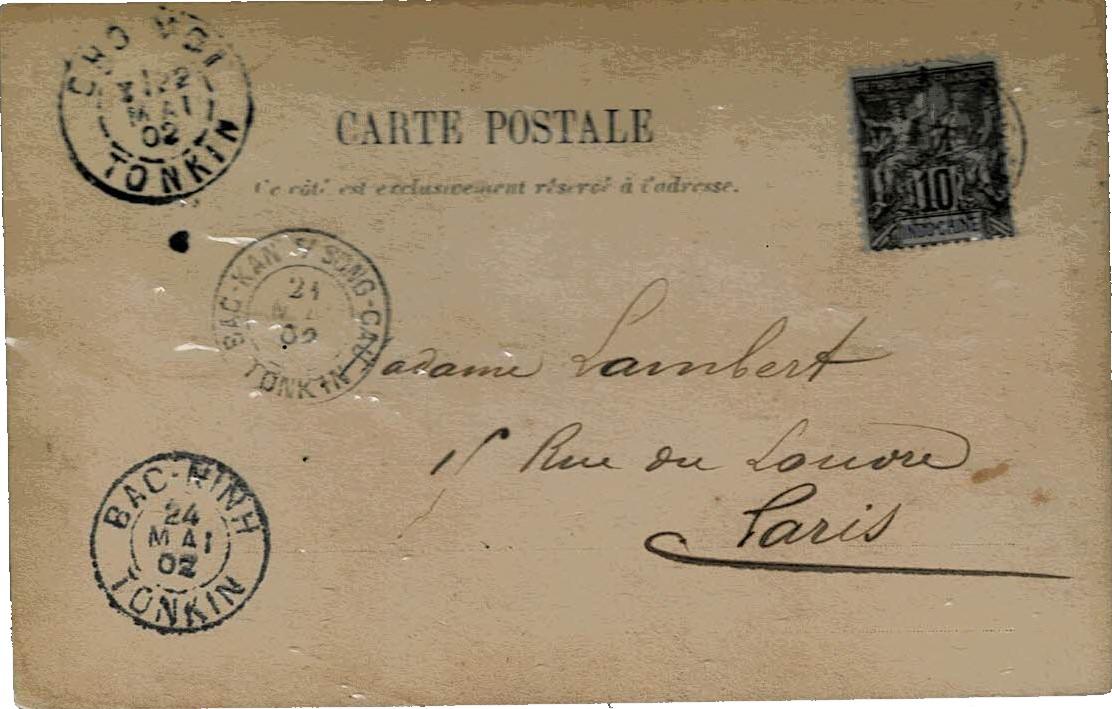 CHO MOI
22
MAI
02
TONKIN
CARTE POSTALE
Ce côté est exclusivement réservé à l'adresse.
10
INDO-CHINE
BAC-KAN S/ SONG-CAU
21
MAI
02
TONKIN
Madame Lambert
15 Rue du Louvre
Paris
BAC-NINH
24
MAI
02
TONKIN